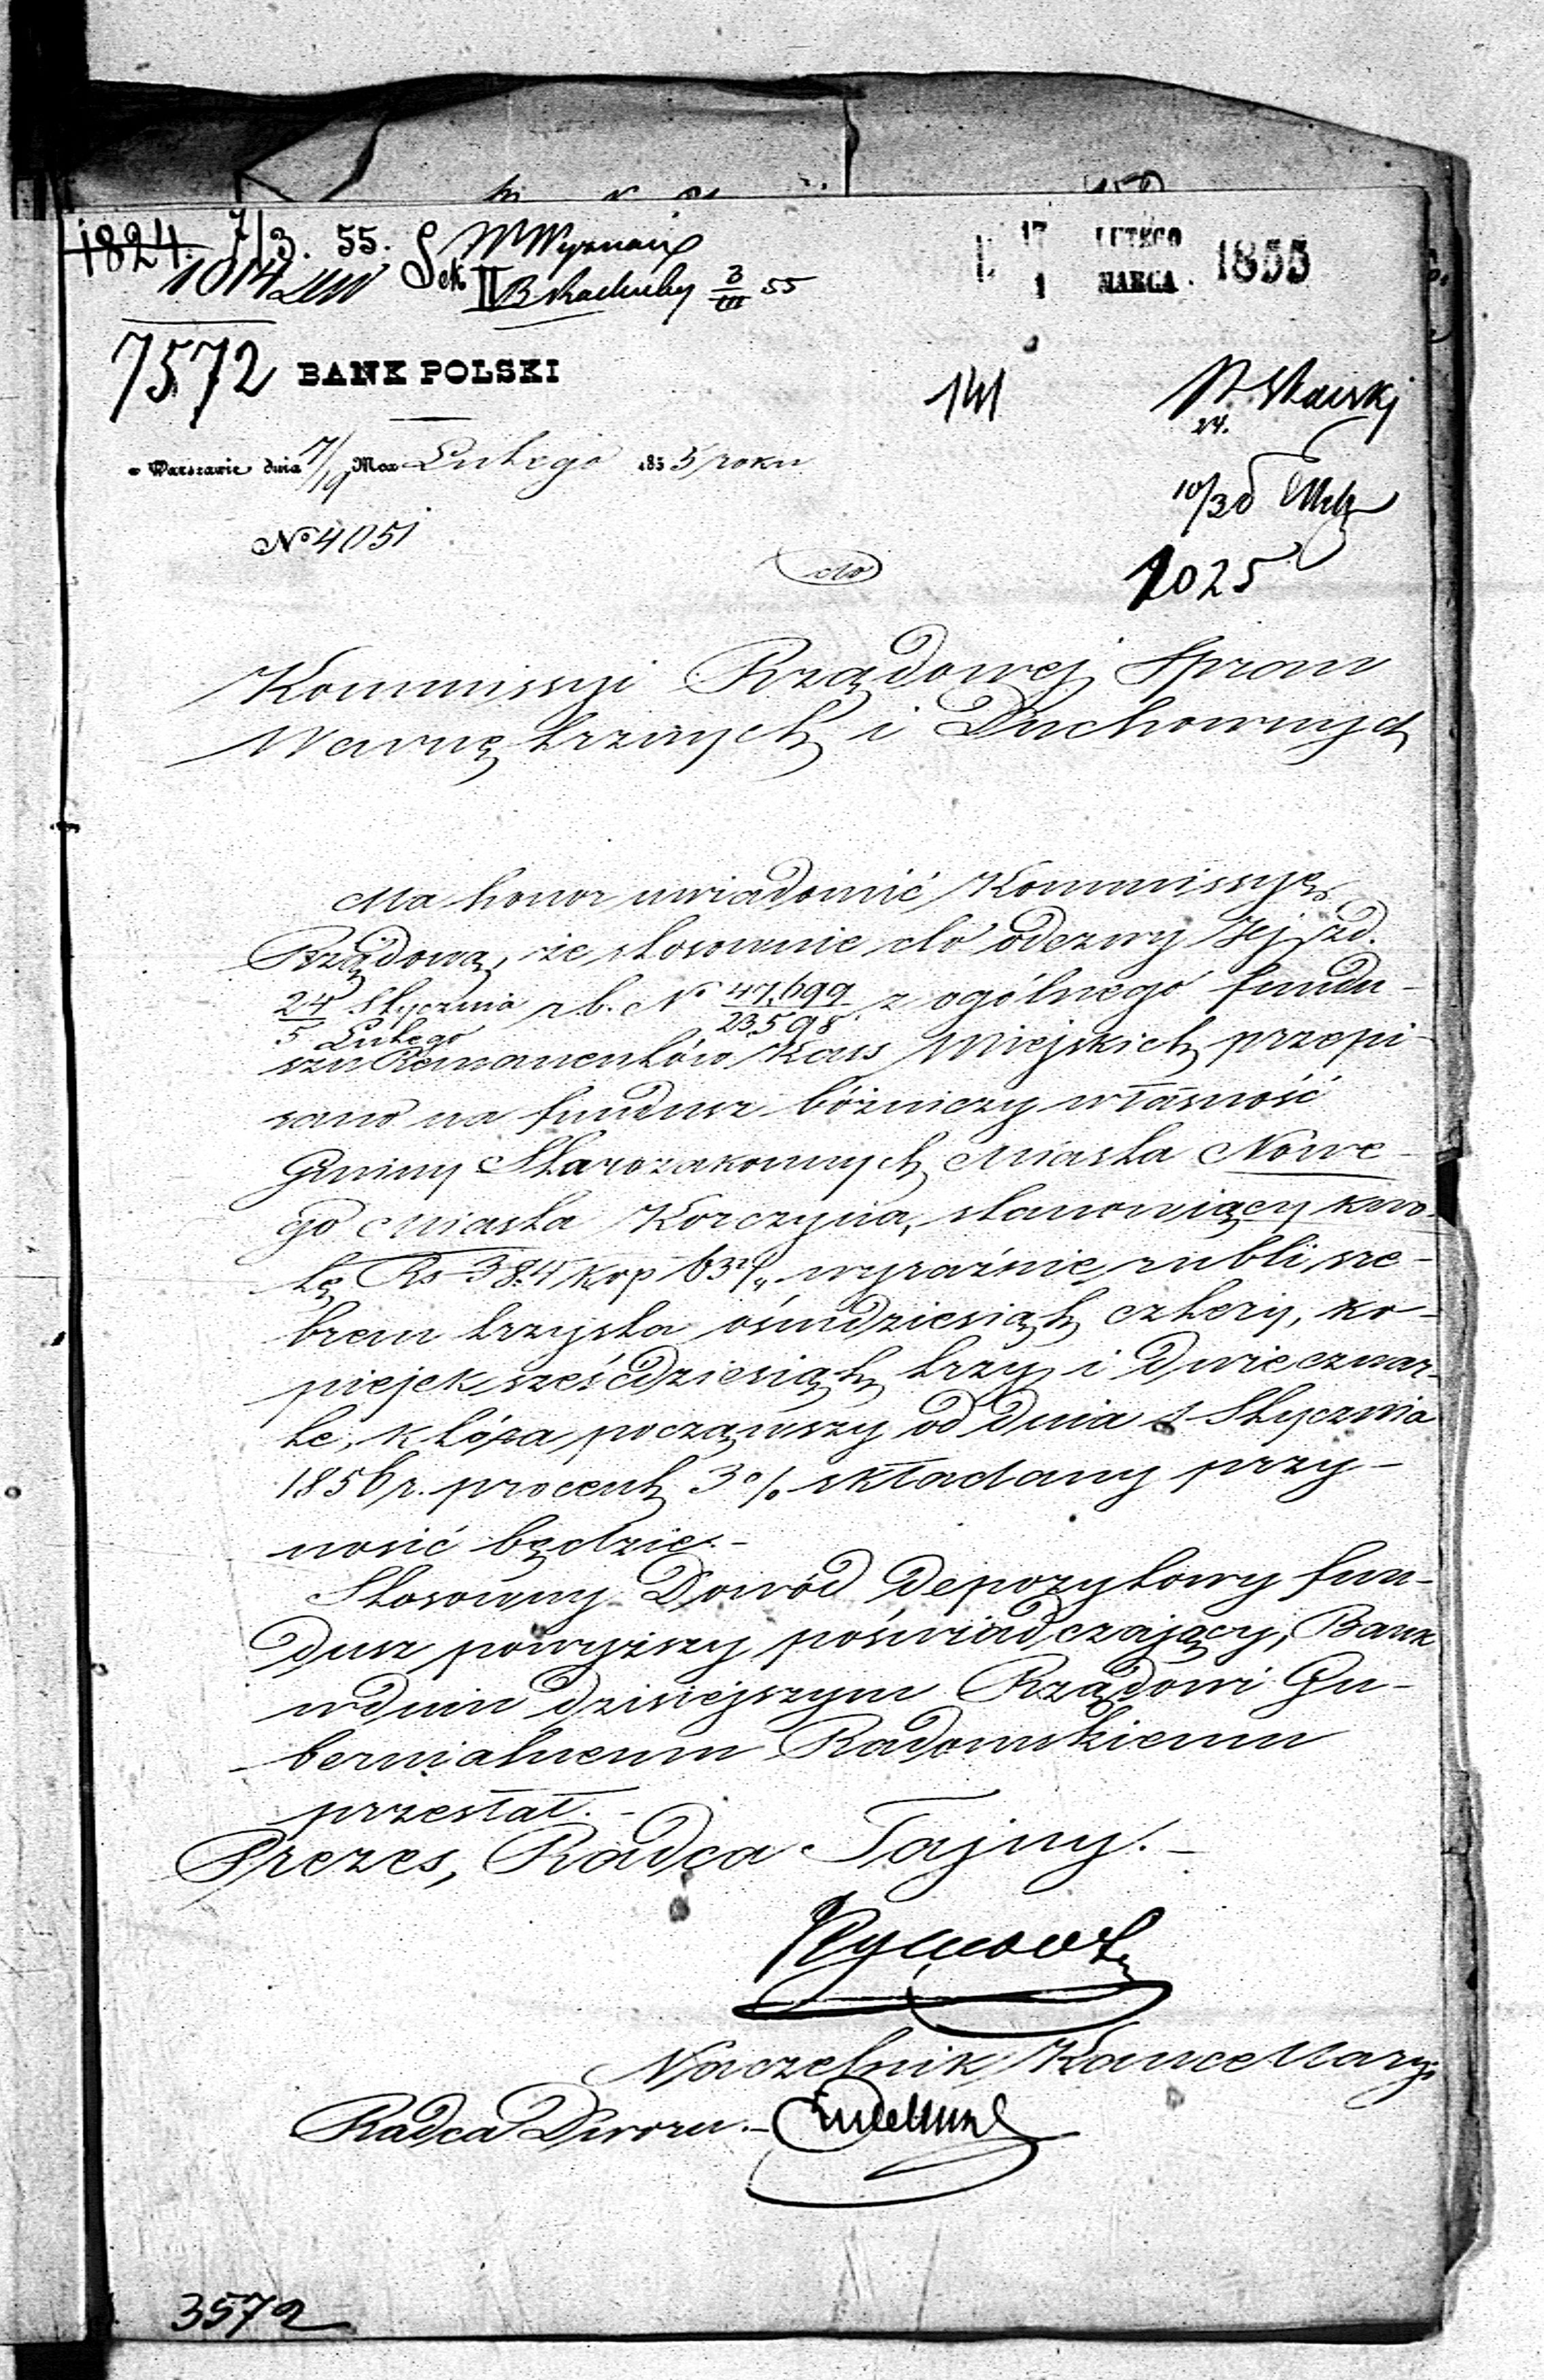 1824. 7/3. 55. Sek W Wyznań
II B Rachuby 3/III 55
17 LUTEGO 1855
1 MARCA
7572 BANK POLSKI
141
24.
w Warszawie dnia 7/19 Mca Lutego 1855 roku
10/3
No 4051
do
1025
Kommissyi Rządowej Spraw
Wewnętrznych i Duchownych
Ma honor uwiadomić Kommissyę
Rządową, że stosownie do odezwy Jej zd.
24 Stycznia / 5 Lutego r. b. No 47,699 / 23,598 z ogólnego fundu-
szu Remanentów Kass Miejskich przepi-
sano na fundusz bóżniczy własność
Gminy Starozakonnych Miasta Nowe-
go Miasta Korczyna, stanowiący kwo-
tę Rs 384 kop 63 2/4 wyraźnie rubli sre-
brem trzysta ośmdziesiąt cztery, ko-
piejek sześćdziesiąt trzy i dwie czwar-
te, która począwszy od dnia 1 Stycznia
1856 r. procent 3% składany przy-
nosić będzie.-
Stosowny Dowód Depozytowy fun-
dusz powyższy poświadczający, Bank
w dniu dzisiejszym Rządowi Gu-
bernialnemu Radomskiemu
przesłał.-
Prezes, Radca Tajny.-
Naczelnik Kancellaryi
Radca Dworu.-
3572